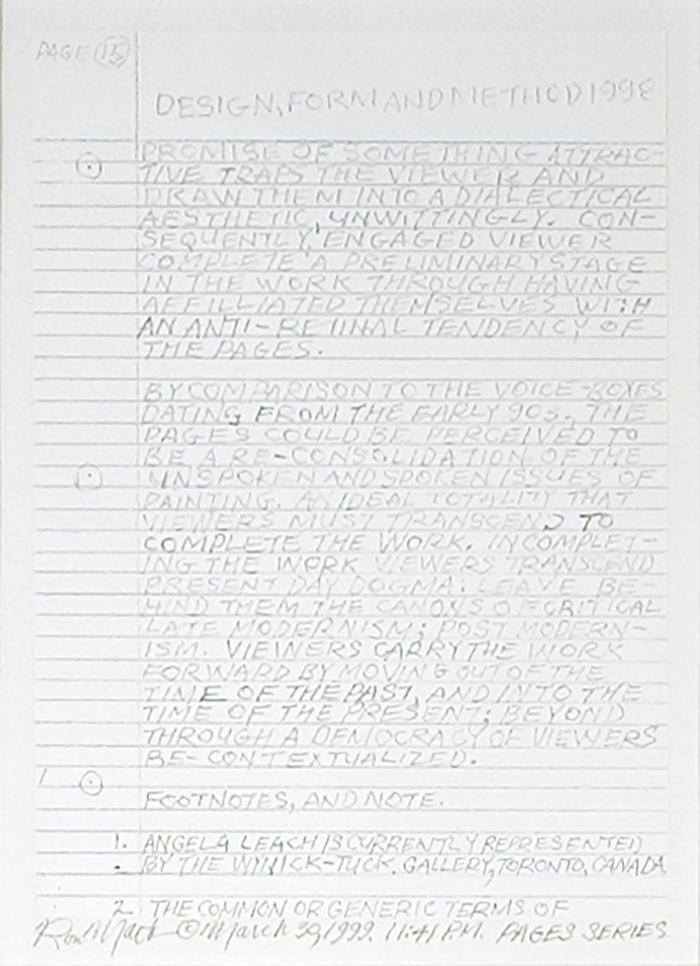 PAGE 15
DESIGN, FORM AND METHOD 1998
PROMISE OF SOMETHING ATTRAC-
TIVE TRAPS THE VIEWER AND
DRAW THEM INTO A DIALECTICAL
AESTHETIC, UNWITTINGLY. CON-
SEQUENTLY, ENGAGED VIEWER
COMPLETE A PRELIMINARY STAGE
IN THE WORK THROUGH HAVING
AFFILLIATED THEMSELVES WITH
AN ANTI-RETINAL TENDENCY OF
THE PAGES.
BY COMPARISON TO THE VOICE-BOXES
DATING FROM THE EARLY 90s, THE
PAGES COULD BE PERCEIVED TO
BE A RE-CONSOLIDATION OF THE
UNSPOKEN AND SPOKEN ISSUES OF
PAINTING. AN IDEAL TOTALITY THAT
VIEWERS MUST TRANSCEND TO
COMPLETE THE WORK. IN COMPLET-
ING THE WORK VIEWERS TRANSCEND
PRESENT DAY DOGMA: LEAVE BE-
HIND THEM THE CANONS OF CRITICAL
LATE MODERNISM; POST MODERN-
ISM. VIEWERS CARRY THE WORK
FORWARD BY MOVING OUT OF THE
TIME OF THE PAST, AND INTO THE
TIME OF THE PRESENT; BEYOND
THROUGH A DEMOCRACY OF VIEWERS
RE-CONTEXTUALIZED.
FOOTNOTES, AND NOTE.
1. ANGELA LEACH IS CURRENTLY REPRESENTED
BY THE WYNICK-TUCK. GALLERY, TORONTO, CANADA
2. THE COMMON OR GENERIC TERMS OF
Ron © March 30, 1999. 11:41 P.M. PAGES SERIES